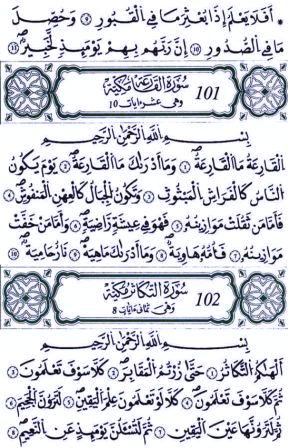 * أَفَلَا يَعْلَمُ إِذَا بُعْثِرَ مَا فِي الْقُبُورِ ۹ وَحُصِّلَ
مَا فِي الصُّدُورِ ۱۰ إِنَّ رَبَّهُم بِهِمْ يَوْمَئِذٍ لَّخَبِيرٌ ۱۱
101 سُورَةُ الْقَارِعَةِ مَكِّيَّةٌ
وهي عشر ءايات 10
بِسْمِ اللَّهِ الرَّحْمَٰنِ الرَّحِيمِ
الْقَارِعَةُ مَا الْقَارِعَةُ ۱ وَمَا أَدْرَاكَ مَا الْقَارِعَةُ ۲ يَوْمَ يَكُونُ
النَّاسُ كَالْفَرَاشِ الْمَبْثُوثِ ۳ وَتَكُونُ الْجِبَالُ كَالْعِهْنِ الْمَنفُوشِ ۴
فَأَمَّا مَن ثَقُلَتْ مَوَازِينُهُ ۵ فَهُوَ فِي عِيشَةٍ رَّاضِيَةٍ ۶ وَأَمَّا مَنْ خَفَّتْ
مَوَازِينُهُ ۷ فَأُمُّهُ هَاوِيَةٌ ۸ وَمَا أَدْرَاكَ مَا هِيَهْ ۹ نَارٌ حَامِيَةٌ ۱۰
102 سُورَةُ التَّكَاثُرِ مَكِّيَّةٌ
وهي ثمان ءايات 8
بِسْمِ اللَّهِ الرَّحْمَٰنِ الرَّحِيمِ
أَلْهَاكُمُ التَّكَاثُرُ ۱ حَتَّىٰ زُرْتُمُ الْمَقَابِرَ ۲ كَلَّا سَوْفَ تَعْلَمُونَ ۳
ثُمَّ كَلَّا سَوْفَ تَعْلَمُونَ ۴ كَلَّا لَوْ تَعْلَمُونَ عِلْمَ الْيَقِينِ ۵ لَتَرَوُنَّ الْجَحِيمَ ۶
ثُمَّ لَتَرَوُنَّهَا عَيْنَ الْيَقِينِ ۷ ثُمَّ لَتُسْأَلُنَّ يَوْمَئِذٍ عَنِ النَّعِيمِ ۸